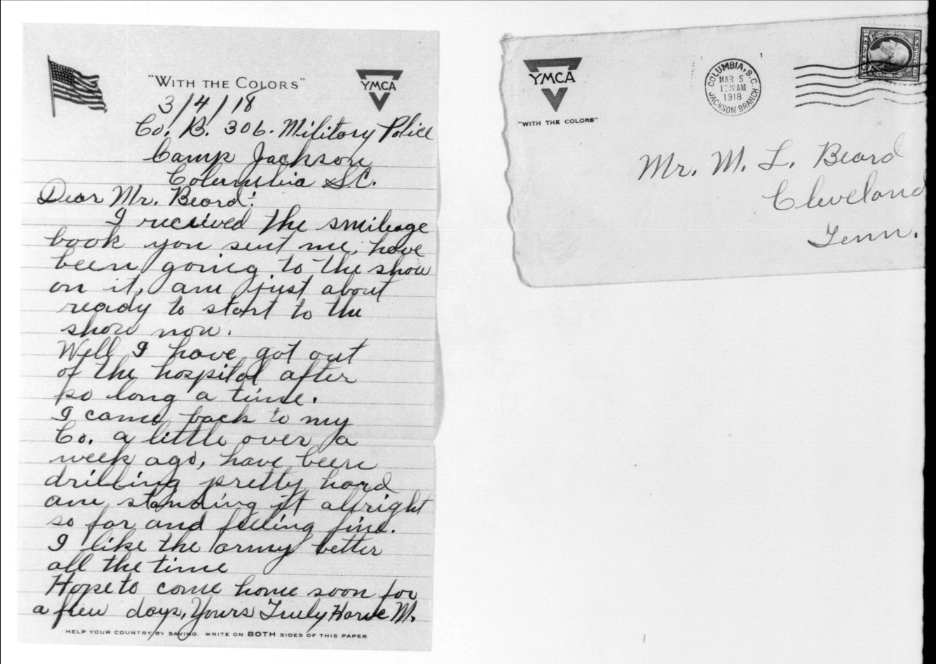 "WITH THE COLORS"
YMCA
3/4/18
Co. B. 306. Military Police
Camp Jackson
Columbia S.C.
Dear Mr. Beard:
I received the smileage
book you sent me, have
been going to the show
on it, am just about
ready to start to the
show now.
Well I have got out
of the hospital after
so long a time.
I came back to my
Co. a little over a
week ago, have been
drilling pretty hard
am standing it allright
so far and feeling fine.
I like the army better
all the time
Hope to come home soon for
a few days. Yours Truly M.
HELP YOUR COUNTRY BY SAVING. WRITE ON BOTH SIDES OF THIS PAPER
YMCA
"WITH THE COLORS"
COLUMBIA, S.C.
MAR 5
AM
1918
JACKSON BRANCH
Mr. M. L. Beard
Cleveland
Tenn.